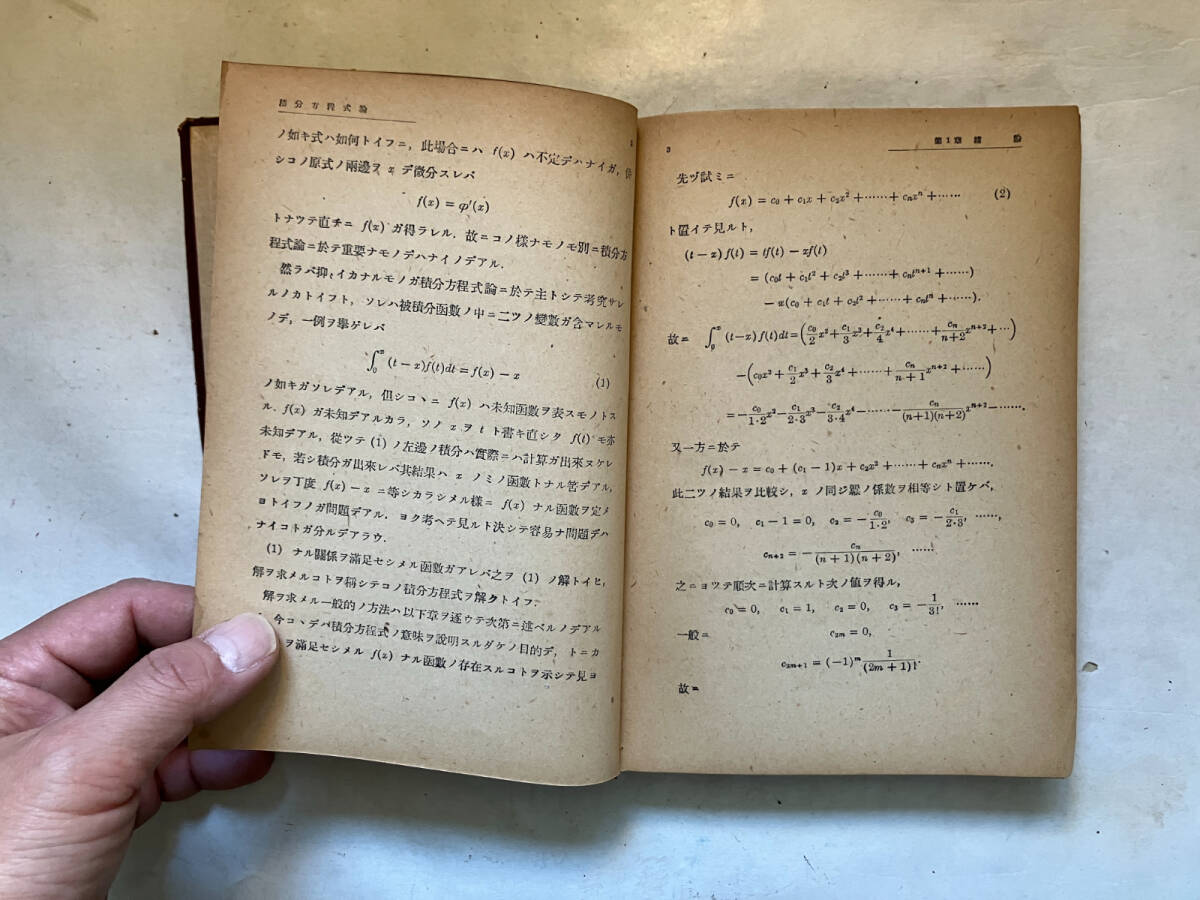 積分方程式論
ノ如キ式ハ如何トイフニ，此場合ニハ f(x) ハ不定デハナイガ，併
シコノ原式ノ兩邊ヲ x デ微分スレバ
f(x) = φ′(x)
トナツテ直チニ f(x) ガ得ラレル．故ニコノ樣ナモノモ別ニ積分方
程式論ニ於テ重要ナモノデハナイノデアル．
然ラバ抑〻イカナルモノガ積分方程式論ニ於テ主トシテ考究サレ
ルノカトイフト，ソレハ被積分函數ノ中ニ二ツノ變數ガ含マレルモ
ノデ，一例ヲ擧ゲレバ
∫₀ˣ (t − x)f(t)dt = f(x) − x (1)
ノ如キガソレデアル，但シコヽニ f(x) ハ未知函數ヲ表スモノトス
ル．f(x) ガ未知デアルカラ，ソノ x ヲ t ト書キ直シタ f(t) モ亦
未知デアル，從ツテ (1) ノ左邊ノ積分ハ實際ニハ計算ガ出來ヌケレ
ドモ，若シ積分ガ出來レバ其結果ハ x ノミノ函數トナル筈デアル，
ソレヲ丁度 f(x) − x ニ等シカラシメル樣ニ f(x) ナル函數ヲ定メ
ヨトイフノガ問題デアル．ヨク考ヘテ見ルト決シテ容易ナ問題デハ
ナイコトガ分ルデアラウ．
(1) ナル關係ヲ滿足セシメル函數ガアレバ之ヲ (1) ノ解トイヒ，
解ヲ求メルコトヲ稱シテコノ積分方程式ヲ解クトイフ．
解ヲ求メル一般的ノ方法ハ以下章ヲ逐ウテ次第ニ述ベルノデアル
今コヽデハ積分方程式ノ意味ヲ說明スルダケノ目的デ，トニカ
ヲ滿足セシメル f(x) ナル函數ノ存在スルコトヲ示シテ見ヨ
3 第1章 緖 論
先ヅ試ミニ
f(x) = c₀ + c₁x + c₂x² + …… + cₙxⁿ + …… (2)
ト置イテ見ルト，
(t − x)f(t) = tf(t) − xf(t)
= (c₀t + c₁t² + c₂t³ + …… + cₙtⁿ⁺¹ + ……)
− x(c₀ + c₁t + c₂t² + …… + cₙtⁿ + ……).
故ニ ∫₀ˣ (t−x)f(t)dt = (c₀/2 x² + c₁/3 x³ + c₂/4 x⁴ + …… + cₙ/(n+2) xⁿ⁺² + …)
− (c₀x² + c₁/2 x³ + c₂/3 x⁴ + …… + cₙ/(n+1) xⁿ⁺² + ……)
= − c₀/(1·2) x² − c₁/(2·3) x³ − c₂/(3·4) x⁴ − …… − cₙ/((n+1)(n+2)) xⁿ⁺² − …….
又一方ニ於テ
f(x) − x = c₀ + (c₁ − 1)x + c₂x² + …… + cₙxⁿ + …….
此二ツノ結果ヲ比較シ，x ノ同ジ冪ノ係數ヲ相等シト置ケバ，
c₀ = 0, c₁ − 1 = 0, c₂ = − c₀/(1·2), c₃ = − c₁/(2·3), ……,
cₙ₊₂ = − cₙ/((n + 1)(n + 2)), ……
之ニヨツテ順次ニ計算スルト次ノ値ヲ得ル，
c₀ = 0, c₁ = 1, c₂ = 0, c₃ = − 1/3!, ……
一般ニ c₂ₘ = 0,
c₂ₘ₊₁ = (−1)ᵐ 1/(2m + 1)!.
故ニ